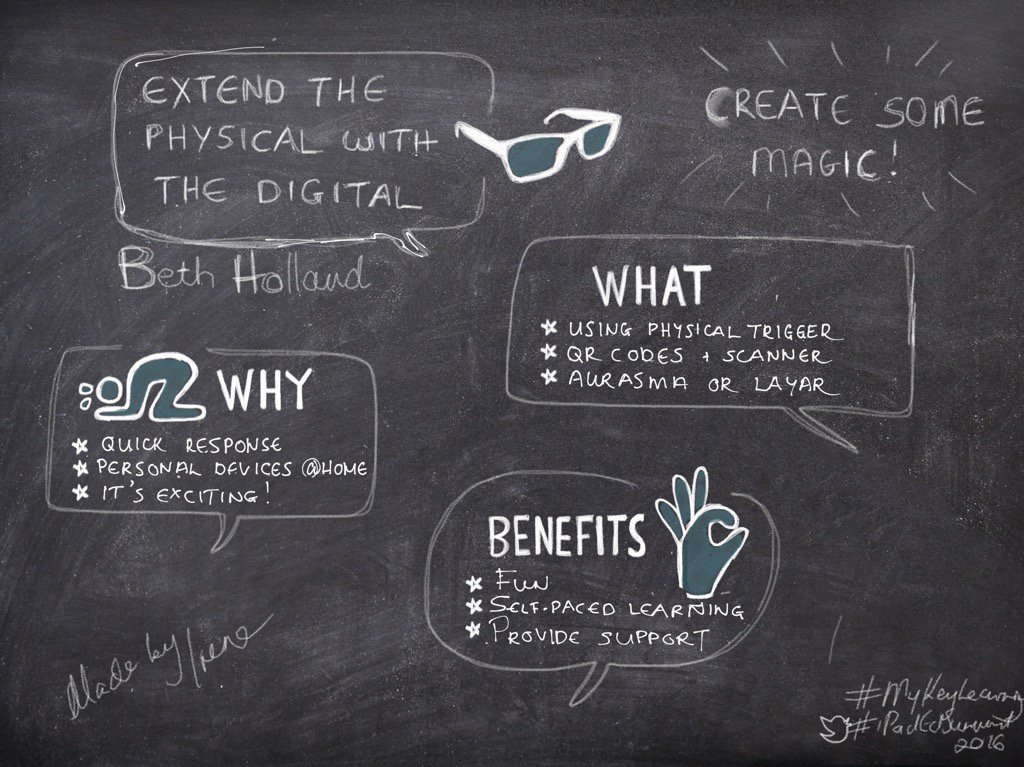 EXTEND THE
PHYSICAL WITH
THE DIGITAL
Beth Holland
CREATE SOME
MAGIC!
WHAT
USING PHYSICAL TRIGGER
QR CODES + SCANNER
AURASMA OR LAYAR
WHY
QUICK RESPONSE
PERSONAL DEVICES @HOME
IT'S EXCITING!
BENEFITS
FUN
SELF-PACED LEARNING
PROVIDE SUPPORT
Made by Irene
#MyKeyLearning
#iPadEdSummit
2016